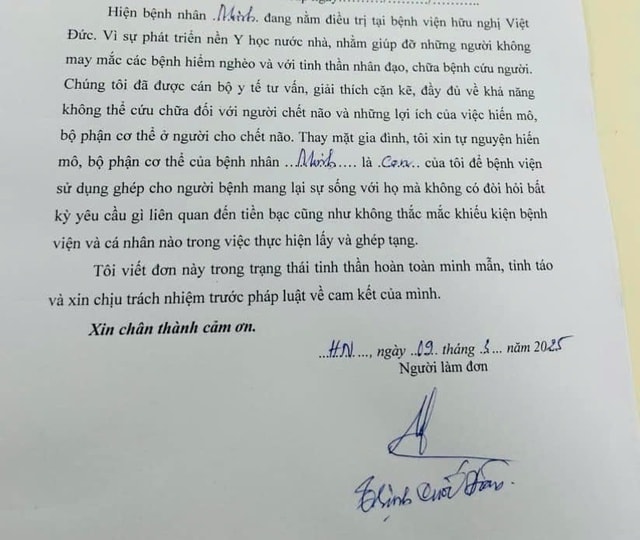 Hiện bệnh nhân .Minh. đang nằm điều trị tại bệnh viện hữu nghị Việt
Đức. Vì sự phát triển nền Y học nước nhà, nhằm giúp đỡ những người không
may mắc các bệnh hiểm nghèo và với tinh thần nhân đạo, chữa bệnh cứu người.
Chúng tôi đã được cán bộ y tế tư vấn, giải thích cặn kẽ, đầy đủ về khả năng
không thể cứu chữa đối với người chết não và những lợi ích của việc hiến mô,
bộ phận cơ thể ở người cho chết não. Thay mặt gia đình, tôi xin tự nguyện hiến
mô, bộ phận cơ thể của bệnh nhân ...Minh.... là .Con.. của tôi để bệnh viện
sử dụng ghép cho người bệnh mang lại sự sống với họ mà không có đòi hỏi bất
kỳ yêu cầu gì liên quan đến tiền bạc cũng như không thắc mắc khiếu kiện bệnh
viện và cá nhân nào trong việc thực hiện lấy và ghép tạng.
Tôi viết đơn này trong trạng thái tinh thần hoàn toàn minh mẫn, tỉnh táo
và xin chịu trách nhiệm trước pháp luật về cam kết của mình.
Xin chân thành cảm ơn.
...HN...., ngày ..09.. tháng .3... năm 2025
Người làm đơn
Quốc